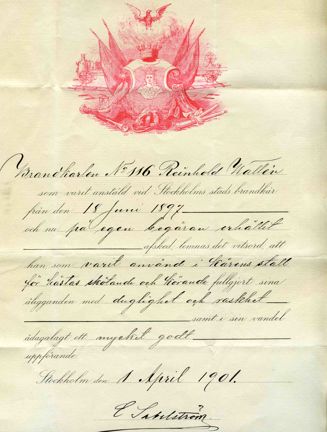 Brandkarlen No 116 Reinhold Wallén
som varit anstäld vid Stockholms stads brandkår
från den 18 Juni 1897
och nu på egen begäran erhållit
afsked, lemnas det vitsord, att
han som varit använd i Kårens stall
för hästas skötande och körande fullgjort sina
åligganden med duglighet och raskhet
samt i sin vandel
ådagalagt ett mycket godt
uppförande.
Stockholm den 1 April 1901.